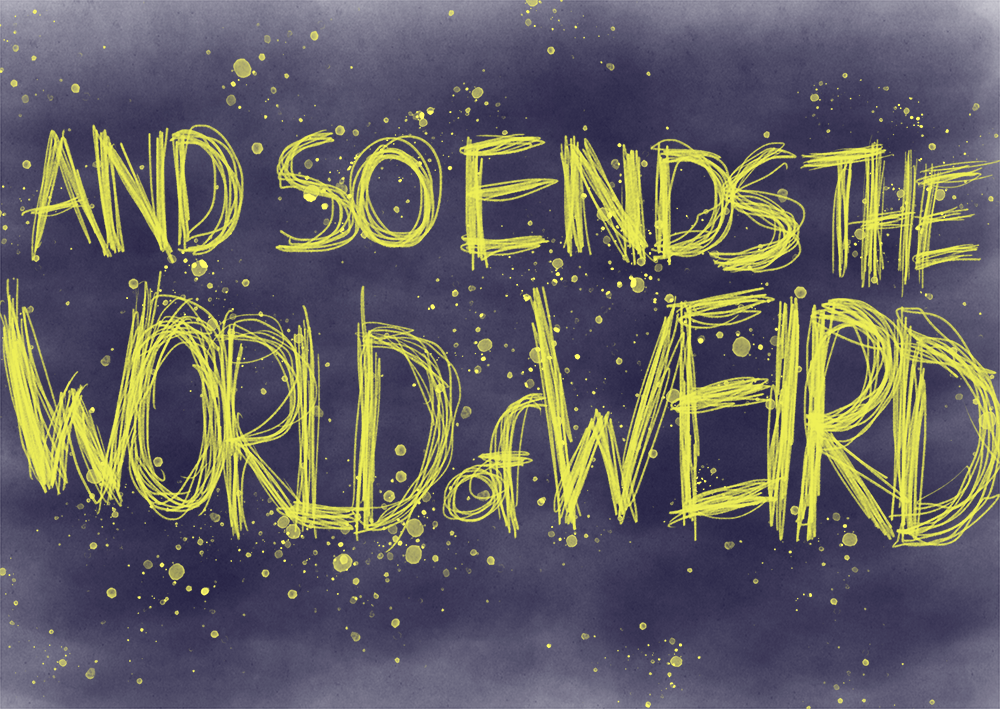 AND SO ENDS THE
WORLD of WEIRD